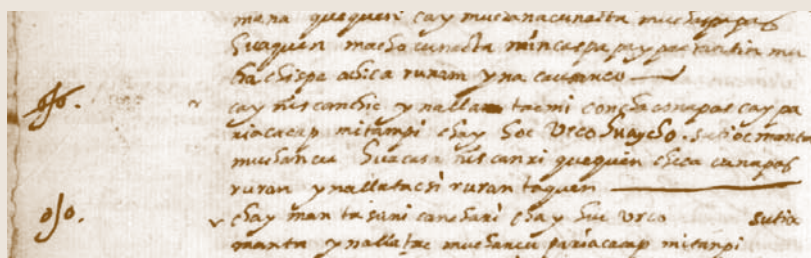 mana quequin cay muchanacunacta muchaspapas
huaquin machocunacta mincaspa pay pac rantin mu
chachispa achica runam yna causanco
o/o. cay ñiscanchic ynallam tacmi conchaconapas cay pa
riacacap mitampi chay hoc Urco huaycho. sutiocmanta
muchancu huacasa ñiscanri quequin checa cunapas
ruran ynallatacsi ruran taquin
o/o. chay man ta suni canchari chay huc urco sutioc
manta ynallatac muchancu pariacacap mitanpi